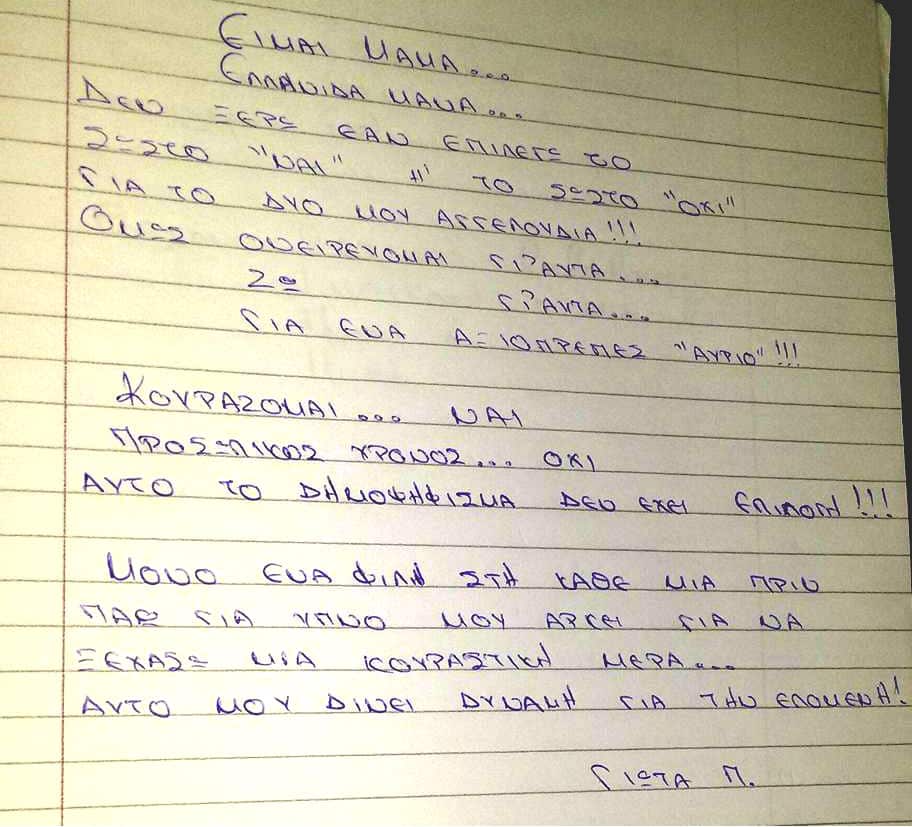 ΕΙΜΑΙ ΜΑΜΑ...
ΕΛΛΗΝΙΔΑ ΜΑΝΑ...
ΔΕΝ ΞΕΡΩ ΕΑΝ ΕΠΙΛΕΓΩ ΤΟ
ΣΩΣΤΟ "ΝΑΙ" Η' ΤΟ ΣΩΣΤΟ "ΟΧΙ"
ΓΙΑ ΤΟ ΔΥΟ ΜΟΥ ΑΓΓΕΛΟΥΔΙΑ!!!
ΟΜΩΣ ΟΝΕΙΡΕΥΟΜΑΙ ΓΙ'ΑΥΤΑ...
ΖΩ ΓΙ'ΑΥΤΑ...
ΓΙΑ ΕΝΑ ΑΞΙΟΠΡΕΠΕΣ "ΑΥΡΙΟ"!!!
ΚΟΥΡΑΖΟΜΑΙ... ΝΑΙ
ΠΡΟΣΩΠΙΚΟΣ ΧΡΟΝΟΣ... ΟΧΙ
ΑΥΤΟ ΤΟ ΔΗΜΟΨΗΦΙΣΜΑ ΔΕΝ ΕΧΕΙ ΕΠΙΛΟΓΗ!!!
ΜΟΝΟ ΕΝΑ ΦΙΛΗ ΣΤΗ ΚΑΘΕ ΜΙΑ ΠΡΙΝ
ΠΑΩ ΓΙΑ ΥΠΝΟ ΜΟΥ ΑΡΚΕΙ ΓΙΑ ΝΑ
ΞΕΧΑΣΩ ΜΙΑ ΚΟΥΡΑΣΤΙΚΗ ΜΕΡΑ...
ΑΥΤΟ ΜΟΥ ΔΙΝΕΙ ΔΥΝΑΜΗ ΓΙΑ ΤΗΝ ΕΠΟΜΕΝΗ!
ΓΙΩΤΑ Π.